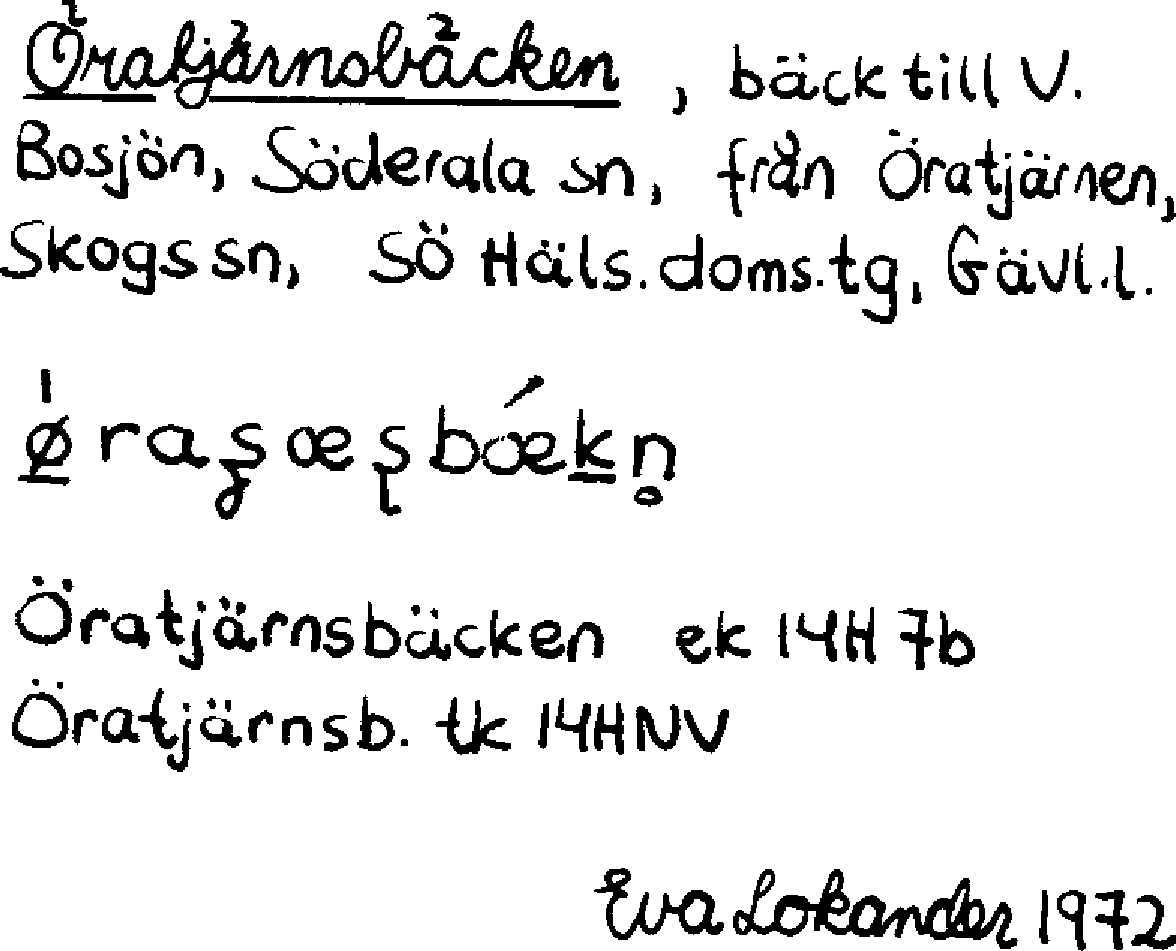 Öratjärnsbäcken, bäck till V.
Bosjön, Söderala sn, från Öratjärnen,
Skogs sn, SÖ Häls. doms.tg, Gävl.l.
Öratjärnsbäcken ek 14H 7b
Öratjärnsb. tk 14HNV
Eva Lokander 1972